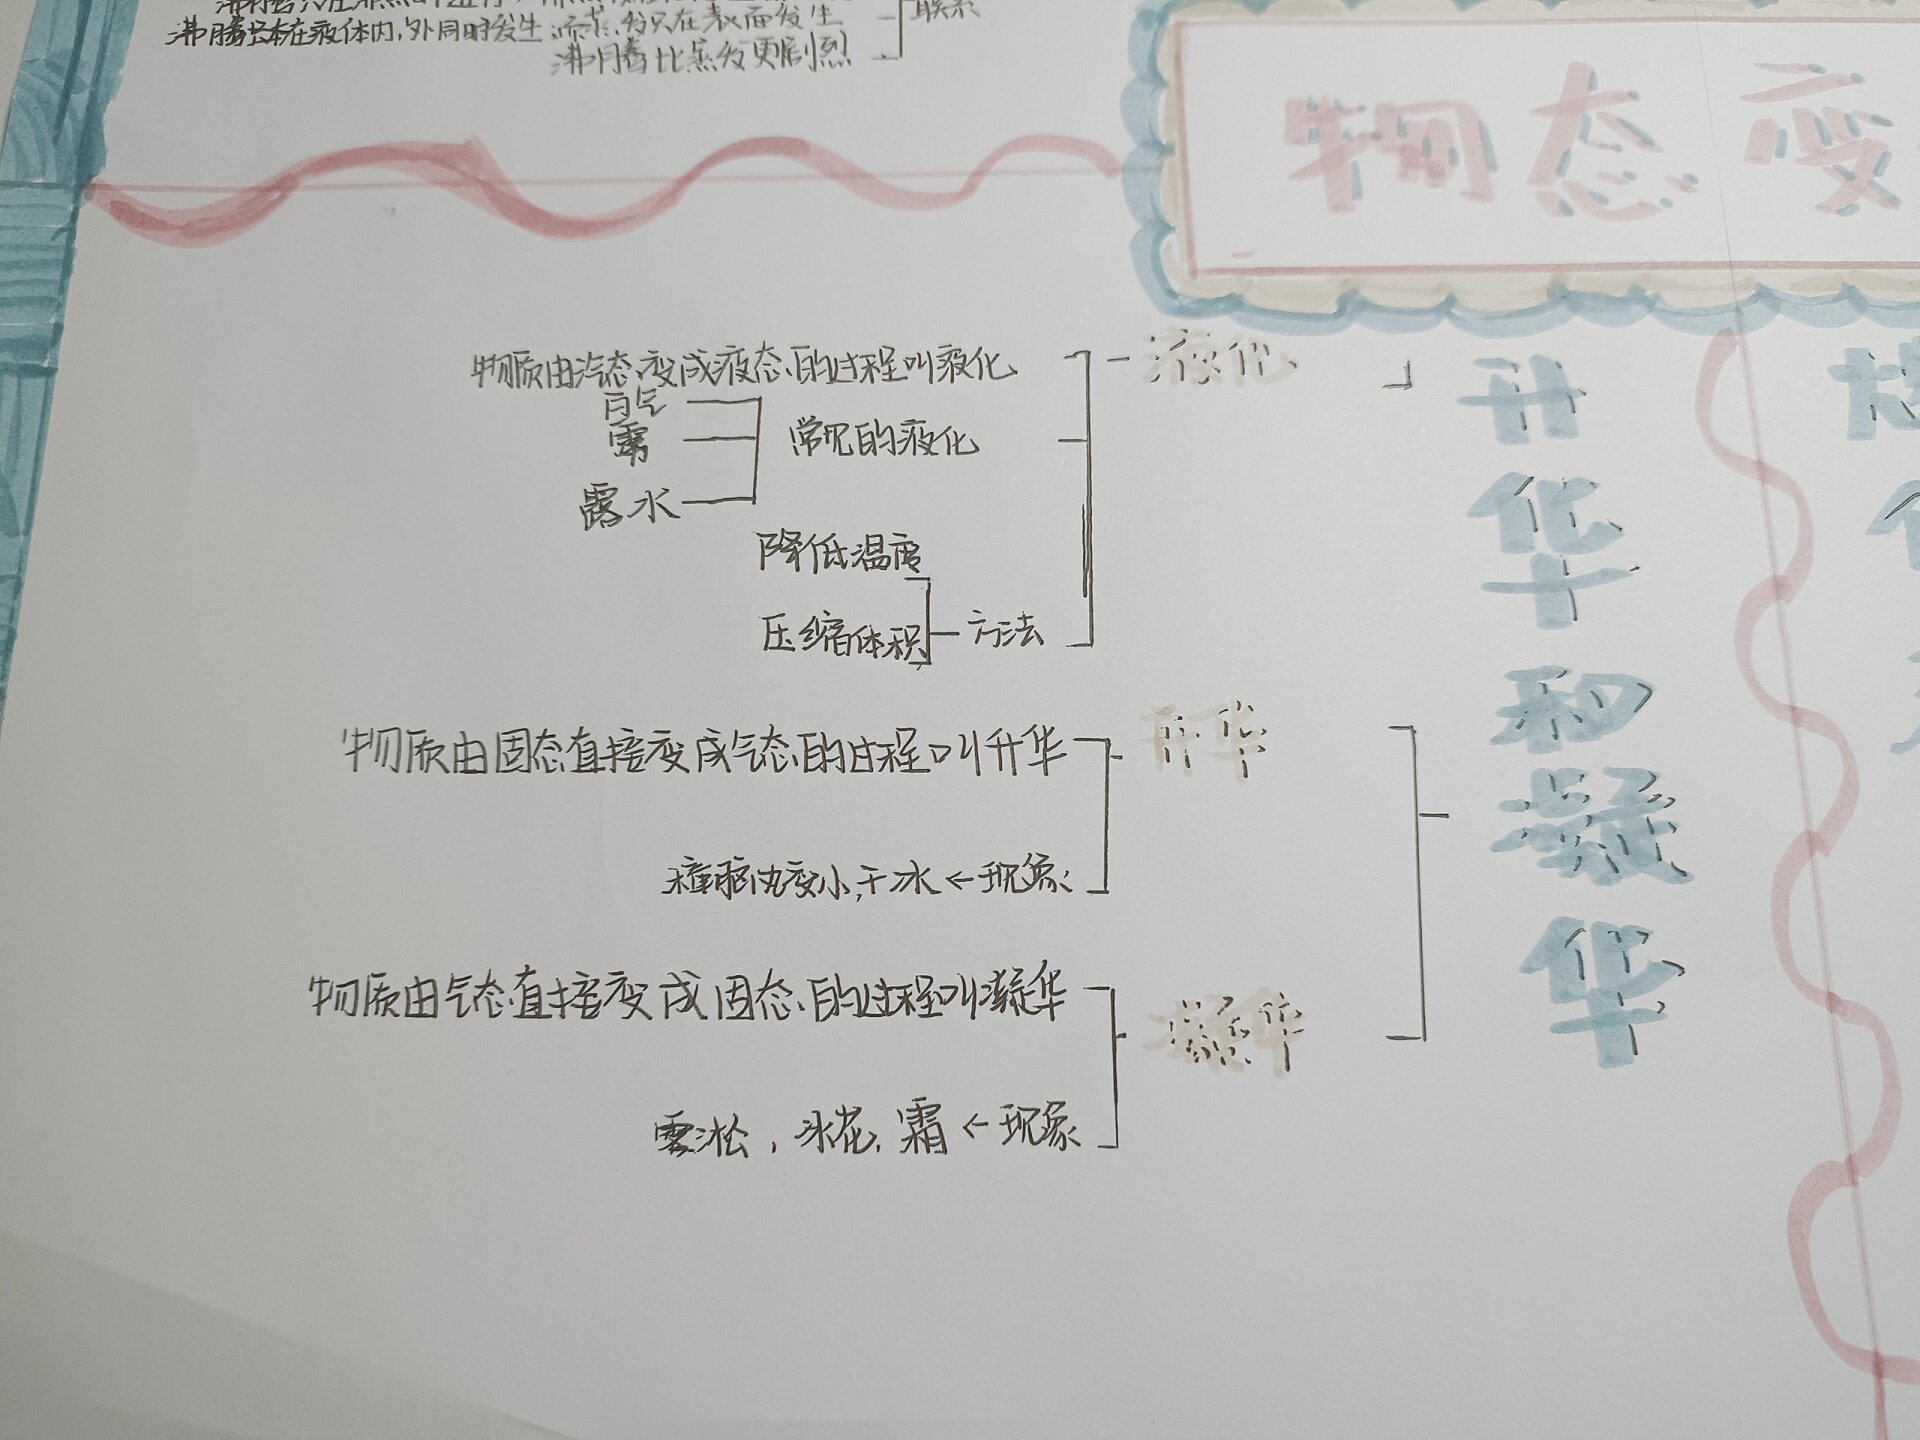 沸腾是在液体内,外同时发生,而蒸发只在表面发生
联系
沸腾比蒸发更剧烈
物态变
物质由汽态变成液态的过程叫液化
液化
白气
雾
常见的液化
露水
降低温度
压缩体积
方法
升华和凝华
物质由固态直接变成气态的过程叫升华
升华
樟脑丸变小,干冰←现象
物质由气态直接变成固态的过程叫凝华
凝华
雾凇,冰花,霜←现象